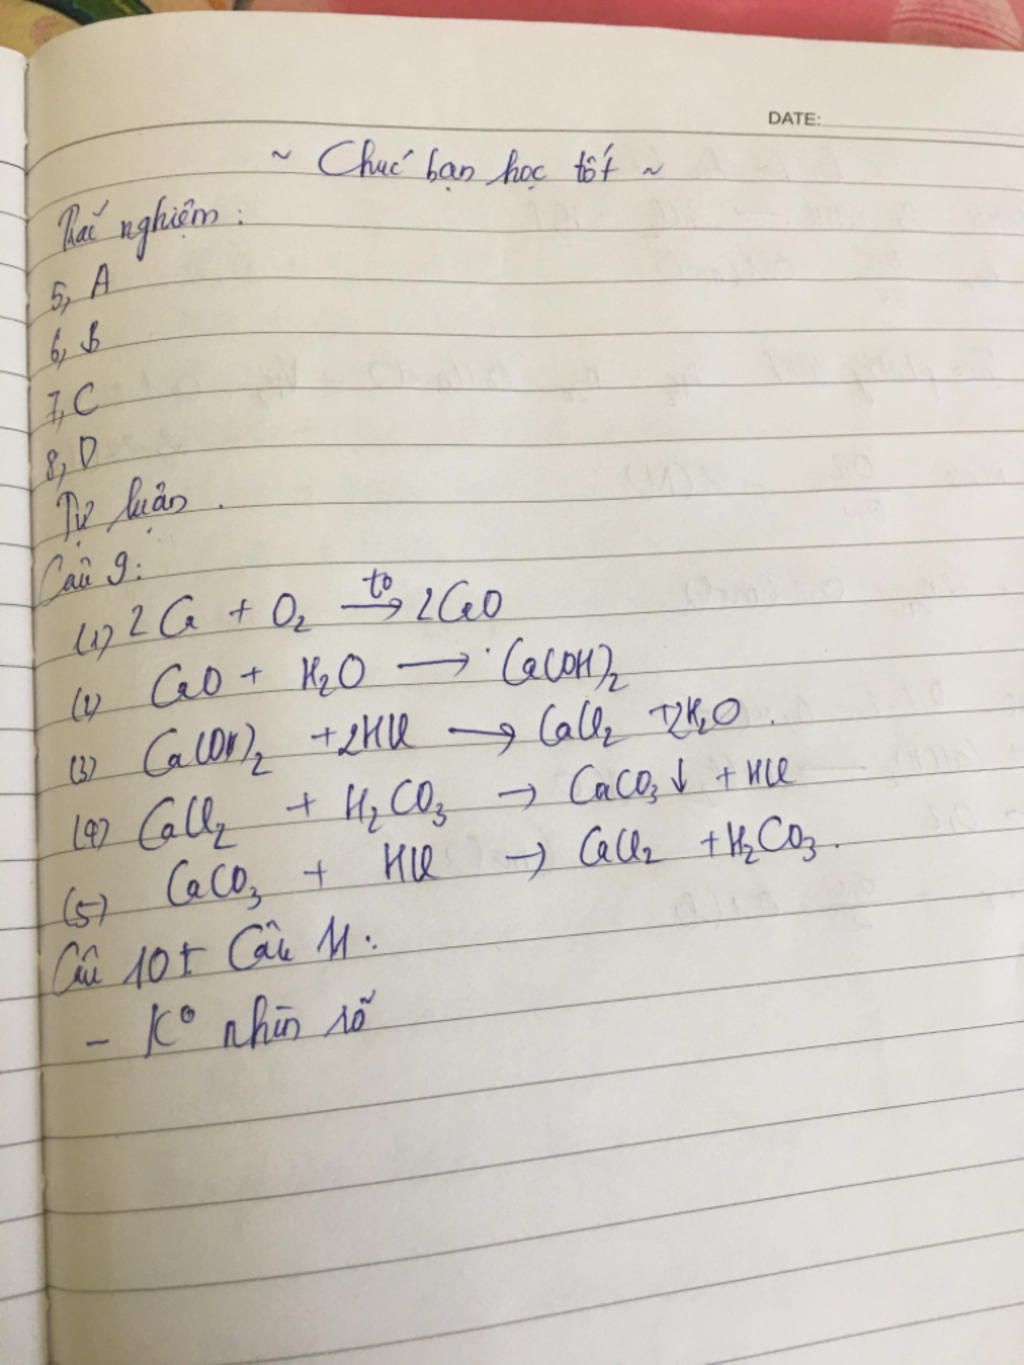 DATE:
~ Chúc bạn học tốt ~
Trắc nghiệm :
5, A
6, B
7, C
8, D
Tự luận .
Câu 9:
(1) 2Ca + O₂ →(t⁰) 2CaO
(2) CaO + H₂O → Ca(OH)₂
(3) Ca(OH)₂ + 2HCl → CaCl₂ + 2H₂O .
(4) CaCl₂ + H₂CO₃ → CaCO₃↓ + HCl
(5) CaCO₃ + HCl → CaCl₂ + H₂CO₃ .
Câu 10 + Câu 11 :
- K⁰ nhìn rõ